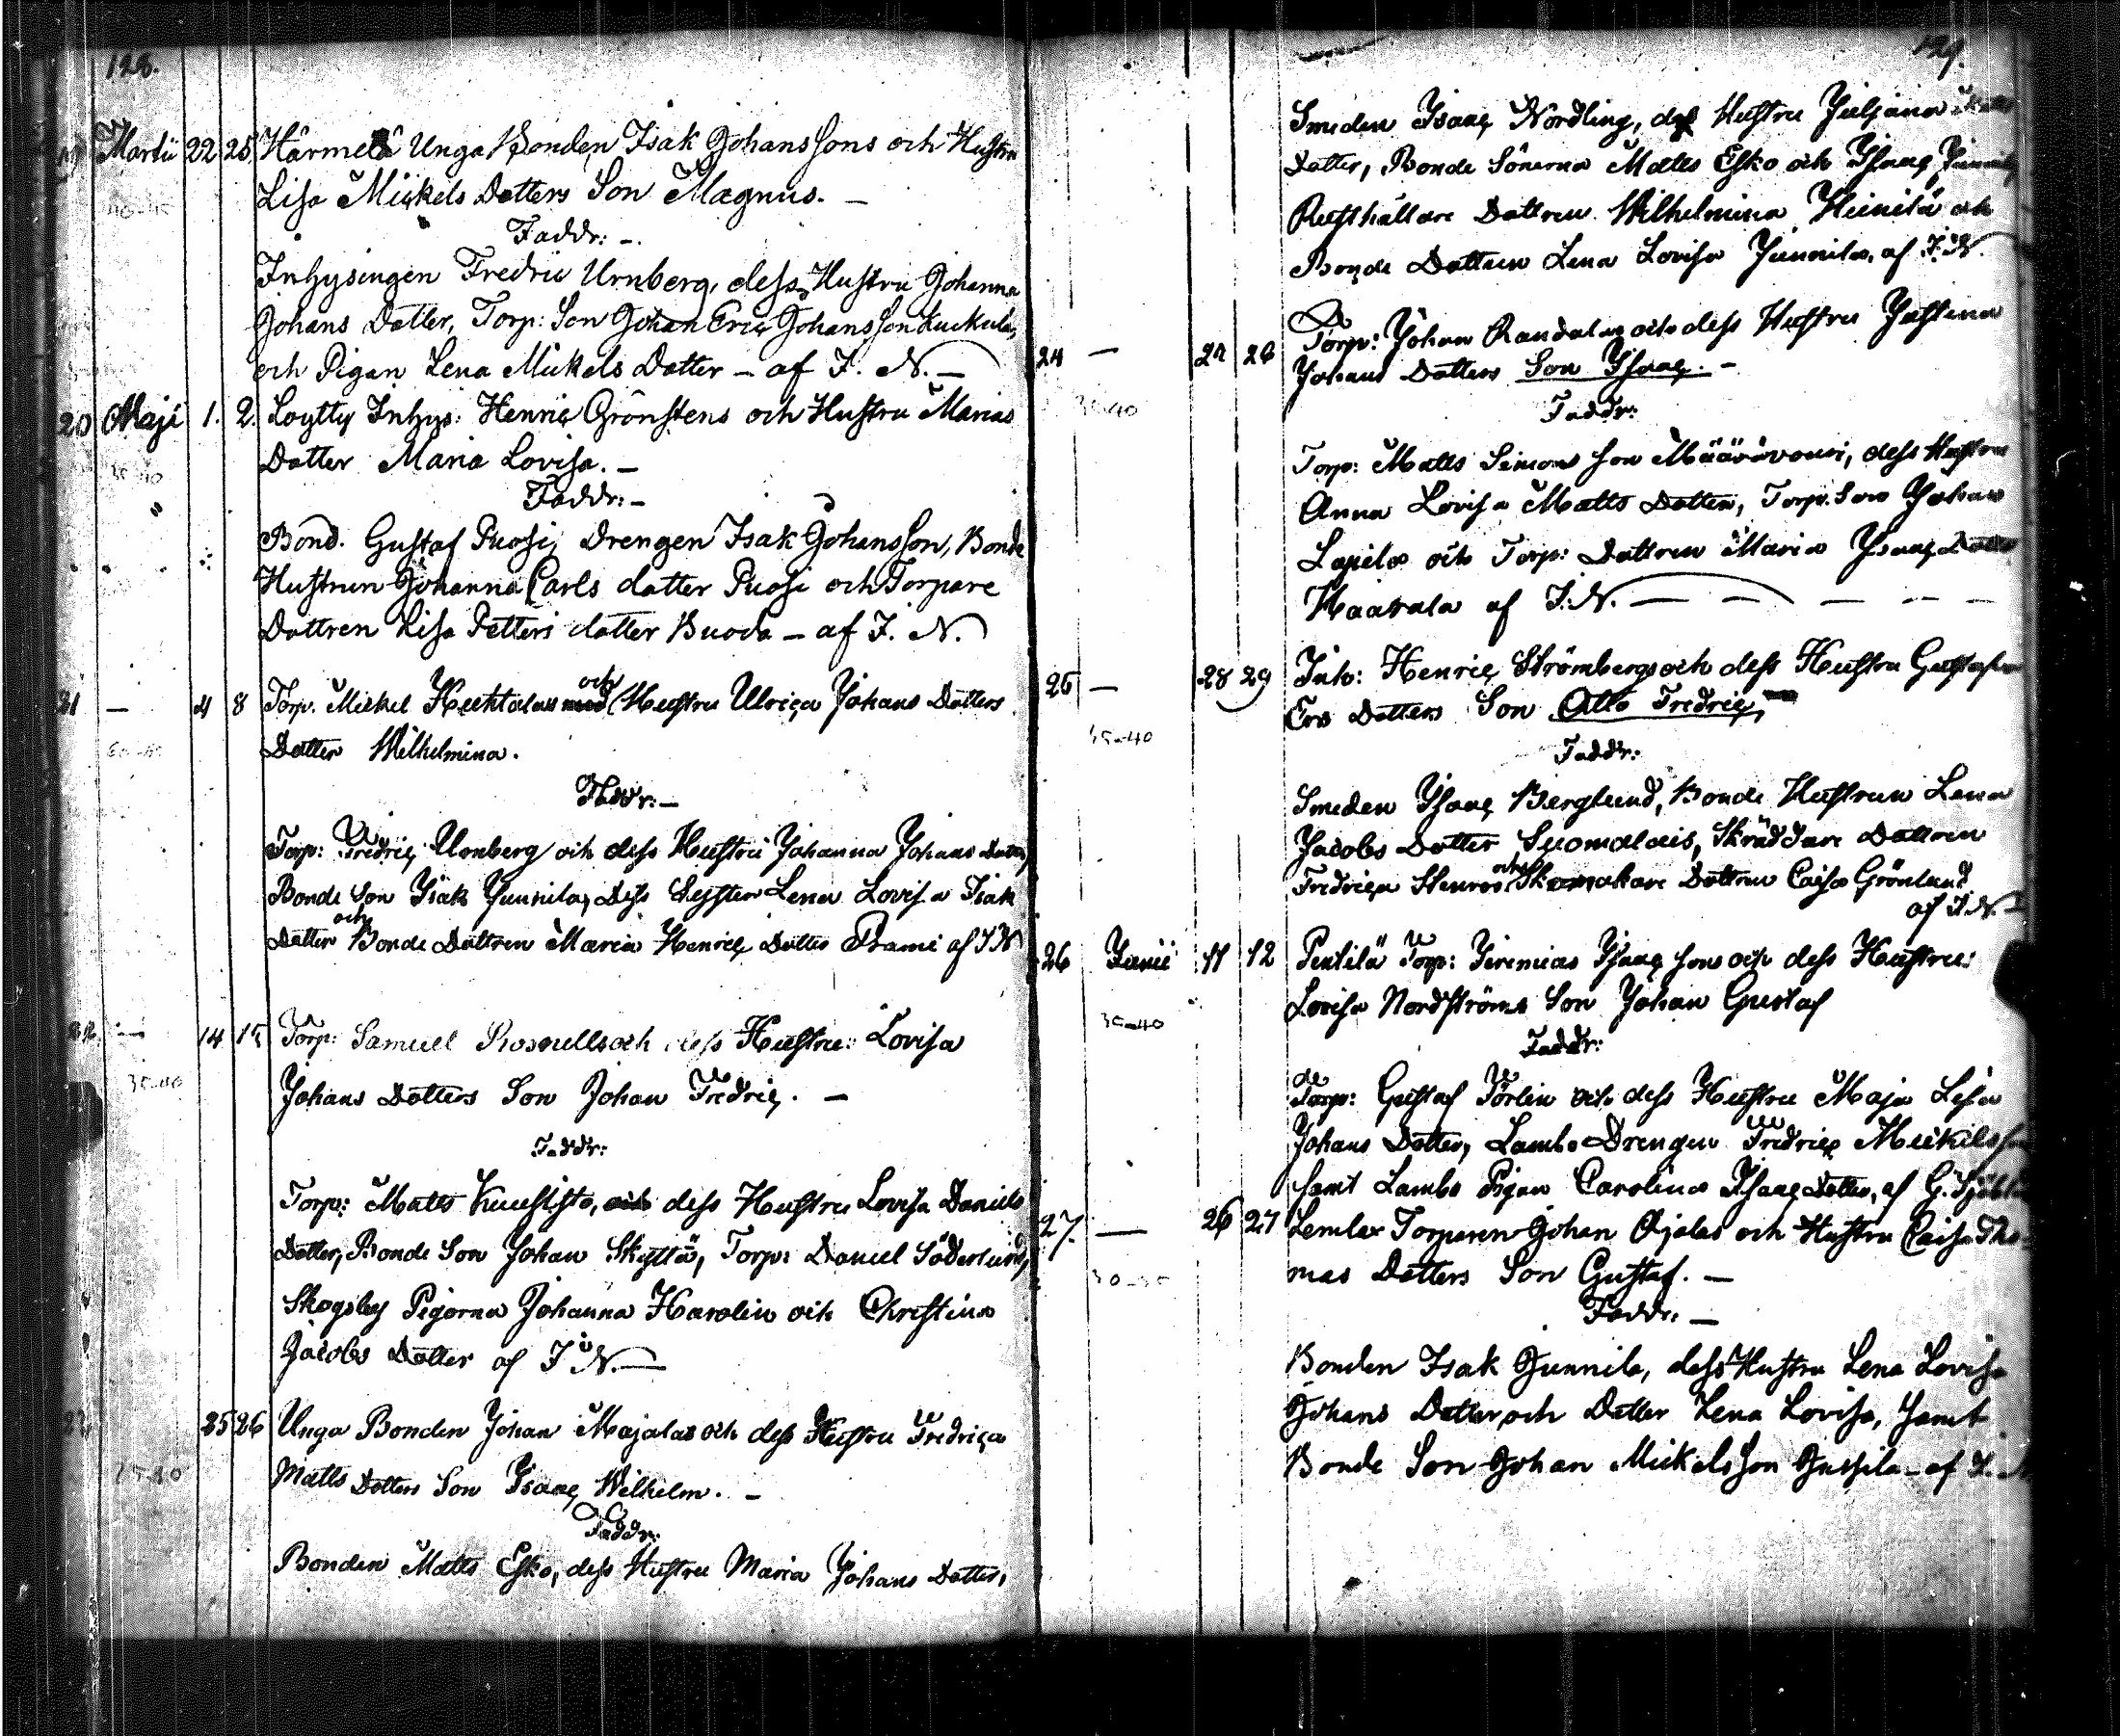 128.
19 Martii 22 25 Härmelä Unga Bonden Isak Johanssons och Hustru
Lisa Mickels Dotters Son Magnus. —
Faddr: —.
Inhysingen Fredric Urnberg, dess Hustru Johanna
Johans Dotter, Torp: Son Johan Eric Johansson Kuckula,
och Pigan Lena Mickels Dotter — af I. N. —
20 Maji 1. 2. Loytty Inhys: Henric Grönstens och Hustru Marias
35-40
Dotter Maria Lovisa. —
Faddr: —
Bond. Gustaf Puosi, Drengen Isak Johansson, Bonde
Hustrun Johanna Carls dotter Puosi och Torpare
Dottren Lisa Petters dotter Buoda — af I. N.
21 — 4 8 Torp. Mickel Huhtalas och Hustru Ulrica Johans Dotters
Dotter Wilhelmina.
Faddr: —
Torp: Fredric Urnberg och dess Hustru Johanna Johans Dotter,
Bonde Son Isak Junnila, Dess Syster Lena Lovisa Isak
Dotter och Bonde Dottren Maria Henric Dotter Prami af I N
22 — 14 15 Torp: Samuel Rosnells och dess Hustru: Lovisa
35-40
Johans Dotters Son Johan Fredric. —
Faddr:
Torp: Matts Kuusisto, dess Hustru Lovisa Daniels
Dotter, Bonde Son Johan Skyttä, Torp: Daniel Söderlund,
Skogsby Pigorna Johanna Harolin och Christina
Jacobs Dotter af I N. —
25 26 Unga Bonden Johan Majalas och dess Hustru Fredrica
Matts Dotters Son Isaac Wilhelm. —
Faddr:
Bonden Matts Esko, dess Hustru Maria Johans Dotter,
129.
Smeden Isaac Nordling, dess Hustru Juliana
Dotter, Bonde Sönerna Matts Esko och Isaac Junnila
Rusthållare Dottren Wilhelmina Heinilä och
Bonde Dottren Lena Lovisa Junnila, af I. N.
24 — 24 26 Torp: Johan Randalas och dess Hustru Justina
Johans Dotters Son Isaac. —
35-40
Faddr:
Torp: Matts Simons son Määrävuori, dess Hustru
Anna Lovisa Matts Dotter, Torp. Son Johan
Lapila och Torp: Dottren Maria Isaac Dotter
Haavala af I. N. —
25 — 28 29 Inh: Henric Strömbergs och dess Hustru Gustafva
Ers Dotters Son Otto Fredric, —
35-40
Faddr:
Smeden Isaac Berglund, Bonde Hustrun Lena
Jacobs Dotter Suomalais, Skräddare Dottren
Fredrica Stenroos och Skomakare Dottren Caisa Grönlund
af I. N. —
26 Junii 11 12 Pentilä Torp: Jeremias Isaac sons och dess Hustru:
Lovisa Nordströms Son Johan Gustaf
35-40
Faddr:
Torp: Gustaf Törlin och dess Hustru Maja Lisa
Johans Dotter, Lambo Drengen Fredric Mickelsson
samt Lambo Pigan Carolina Isaac Dotter, af G.
27. — 26 27 Lemler Torparen Johan Ojalas och Hustru Caisa Tho-
30-35
mas Dotters Son Gustaf. —
Faddr: —
Bonden Isak Junnila, dess Hustru Lena Lovisa
Johans Dotter och Dotter Lena Lovisa, samt
Bonde Son Johan Mickelsson Jussila — af I. N